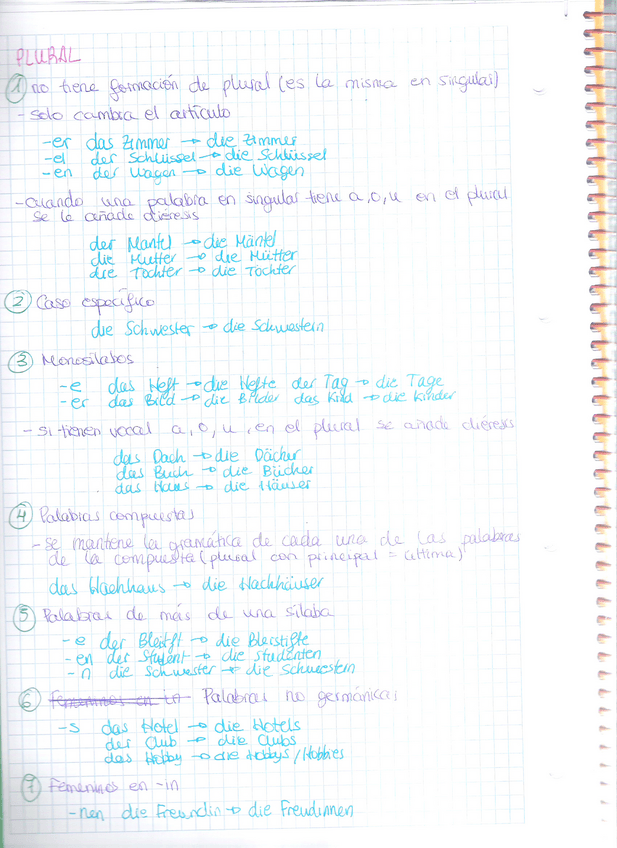 PLURAL
① no tiene formación de plural (es la misma en singular)
- solo cambia el artículo
-er das Zimmer → die Zimmer
-el der Schlüssel → die Schlüssel
-en der Wagen → die Wagen
- cuando una palabra en singular tiene a, o, u en el plural
se le añade diéresis
der Mantel → die Mäntel
die Mutter → die Mütter
die Tochter → die Töchter
② Caso específico
die Schwester → die Schwestern
③ Monosílabos
-e das Heft → die Hefte der Tag → die Tage
-er das Bild → die Bilder das Kind → die Kinder
- si tienen vocal a, o, u, en el plural se añade diéresis
das Dach → die Dächer
das Buch → die Bücher
das Haus → die Häuser
④ Palabras compuestas
- se mantiene la gramática de cada una de las palabras
de la compuesta (plural con principal = última)
das Hochhaus → die Hochhäuser
⑤ Palabras de más de una sílaba
-e der Bleitft → die Bleistifte
-en der Student → die Studenten
-n die Schwester → die Schwestern
⑥ Femeninos en in Palabras no germánicas
-s das Hotel → die Hotels
der Club → die Clubs
das Hobby → die Hobbys / Hobbies
⑦ Femeninos en -in
-nen die Freundin → die Freudinnen